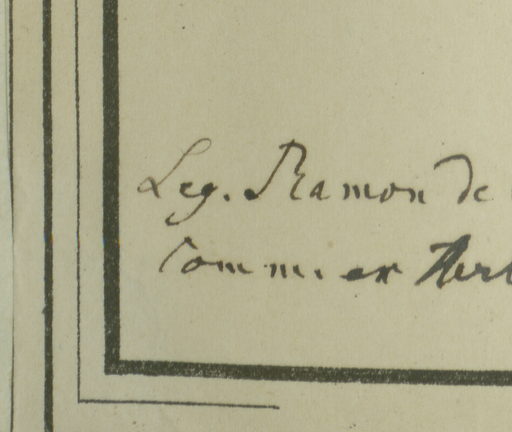 Leg. Ramon de
Comm. ex Herb